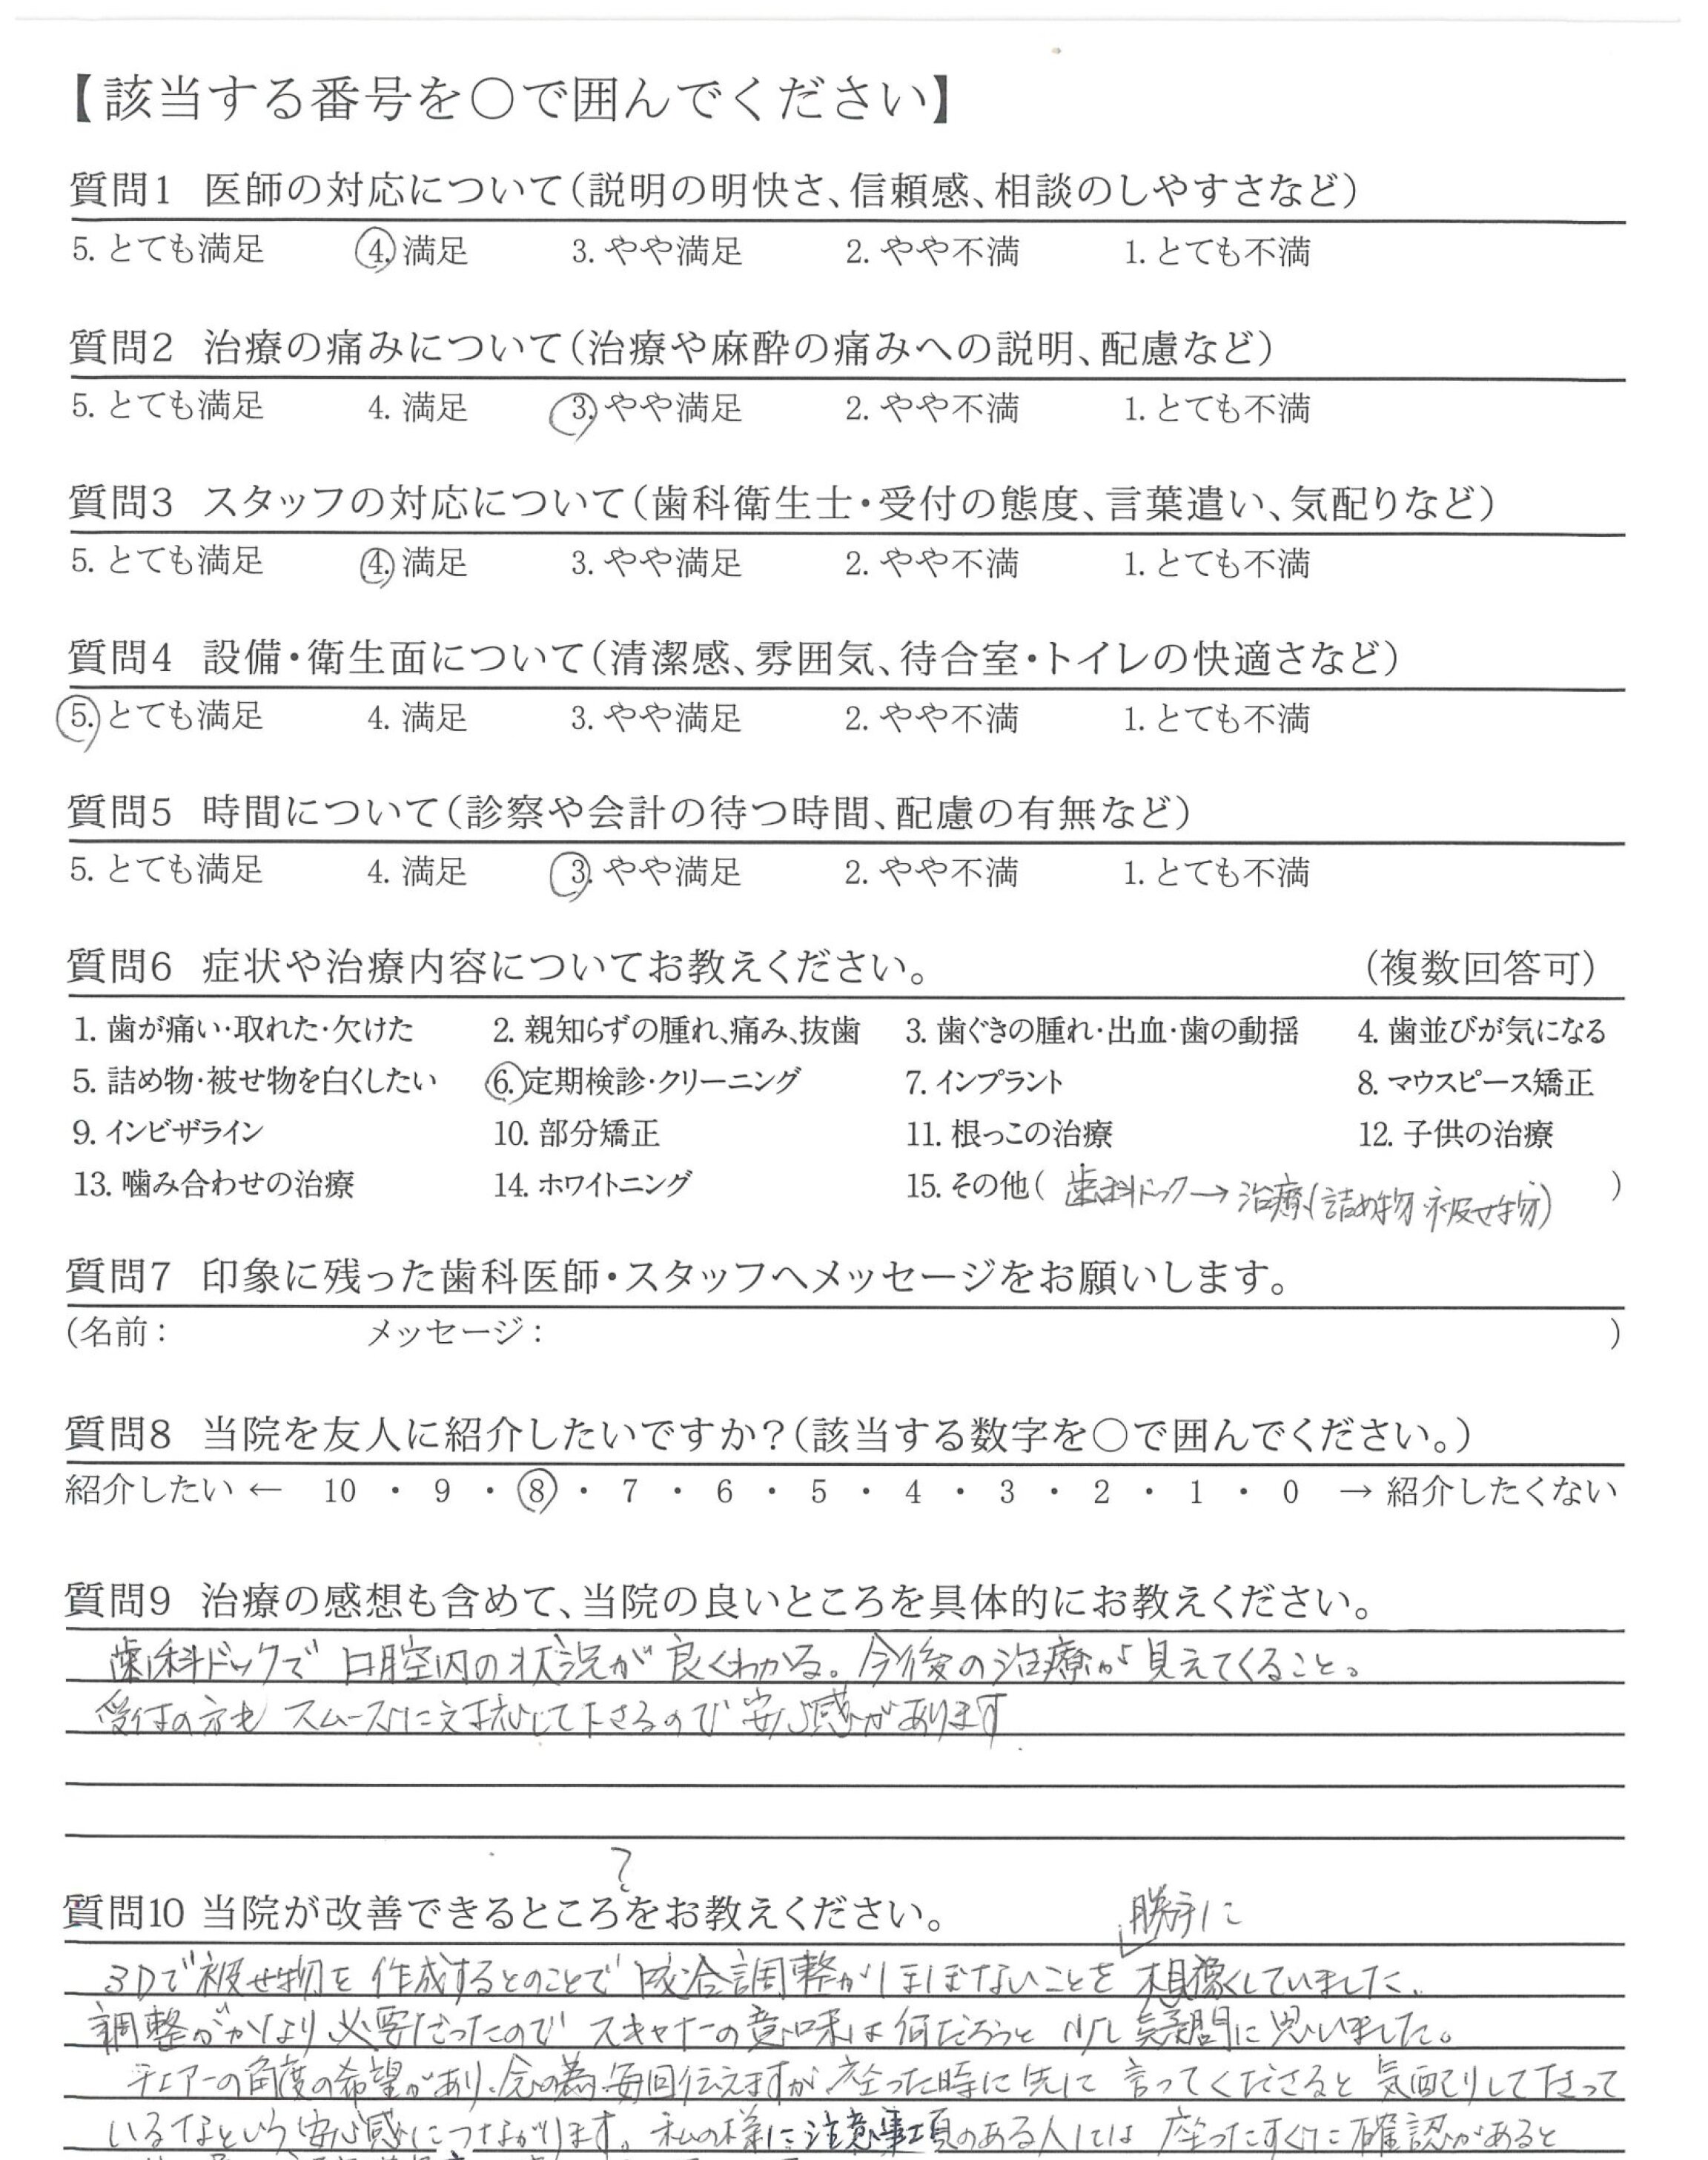 【該当する番号を○で囲んでください】
質問1 医師の対応について(説明の明快さ、信頼感、相談のしやすさなど)
5. とても満足 4. 満足 3. やや満足 2. やや不満 1. とても不満
質問2 治療の痛みについて(治療や麻酔の痛みへの説明、配慮など)
5. とても満足 4. 満足 3. やや満足 2. やや不満 1. とても不満
質問3 スタッフの対応について(歯科衛生士・受付の態度、言葉遣い、気配りなど)
5. とても満足 4. 満足 3. やや満足 2. やや不満 1. とても不満
質問4 設備・衛生面について(清潔感、雰囲気、待合室・トイレの快適さなど)
5. とても満足 4. 満足 3. やや満足 2. やや不満 1. とても不満
質問5 時間について(診察や会計の待つ時間、配慮の有無など)
5. とても満足 4. 満足 3. やや満足 2. やや不満 1. とても不満
質問6 症状や治療内容についてお教えください。 (複数回答可)
1. 歯が痛い・取れた・欠けた 2. 親知らずの腫れ、痛み、抜歯 3. 歯ぐきの腫れ・出血・歯の動揺 4. 歯並びが気になる
5. 詰め物・被せ物を白くしたい 6. 定期検診・クリーニング 7. インプラント 8. マウスピース矯正
9. インビザライン 10. 部分矯正 11. 根っこの治療 12. 子供の治療
13. 噛み合わせの治療 14. ホワイトニング 15. その他( 歯科ドック→治療(詰め物・被せ物) )
質問7 印象に残った歯科医師・スタッフへメッセージをお願いします。
(名前: メッセージ: )
質問8 当院を友人に紹介したいですか?(該当する数字を○で囲んでください。)
紹介したい ← 10 ・ 9 ・ 8 ・ 7 ・ 6 ・ 5 ・ 4 ・ 3 ・ 2 ・ 1 ・ 0 → 紹介したくない
質問9 治療の感想も含めて、当院の良いところを具体的にお教えください。
歯科ドックで口腔内の状況が良くわかる。今後の治療が見えてくること。
受付の方もスムーズに対応して下さるので安心感があります
?
質問10 当院が改善できるところをお教えください。
勝手に
3Dで被せ物を作成するとのことで咬合調整がほぼないことを想像していました。
調整がかなり必要だったのでスキャナーの意味は何だろうと少し疑問に思いました。
チェアーの角度の希望があり、念の為、毎回伝えますが、座った時に先に言ってくださると気配りして下さって
いるなという安心感につながります。私の様に注意事項のある人には座ったすぐに確認があると